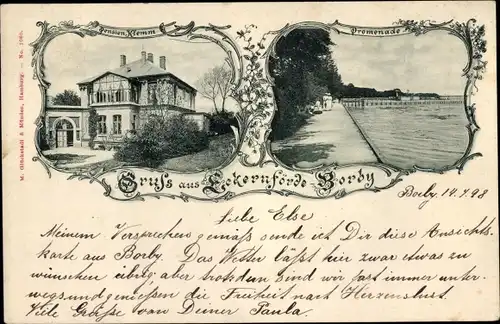 Pension Klemm
Promenade
M. Glückstadt & Münden, Hamburg.
Gruß aus Eckernförde Borby
Borby 14.7.98
Liebe Else
Meinem Versprechen gemäß sende ich Dir diese Ansichts-
karte aus Borby. Das Wetter läßt hier zwar etwas zu
wünschen übrig aber trotzdem sind wir fast immer unter-
wegs und genießen die Freiheit nach Herzenslust.
Viele Grüße von Deiner Paula.